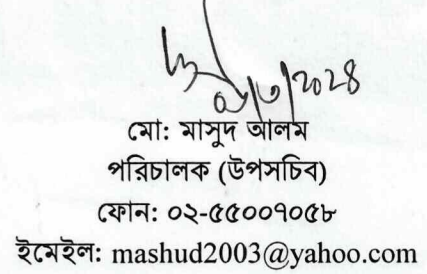 মো: মাসুদ আলম
পরিচালক (উপসচিব)
ফোন: ০২-৫৫০০৭০৫৮
ইমেইল: mashud2003@yahoo.com